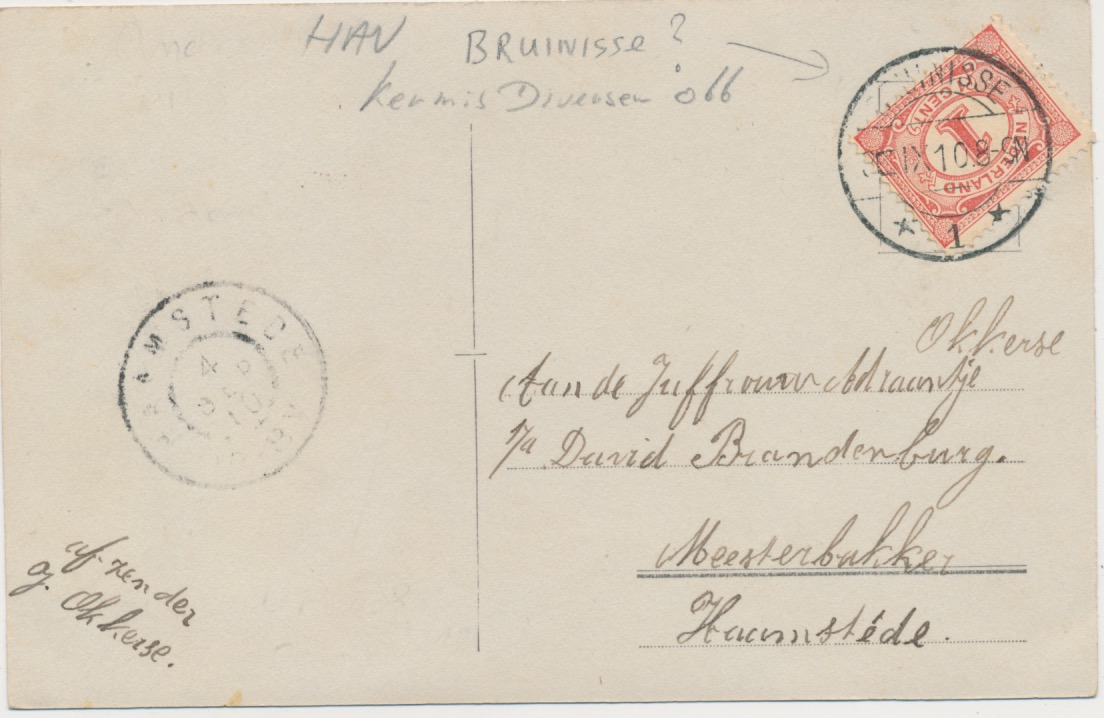 HAV BRUINISSE ?
Kermis Diversen 066
BRUINISSE
IX 10.8-9N
1
NEDERLAND
1 CENT
HAAMSTEDE
Okkerse
Aan de Juffrouw Adraantje
p/a David Brandenburg.
Meesterbakker
Haamstéde.
afzender
J. Okkerse.